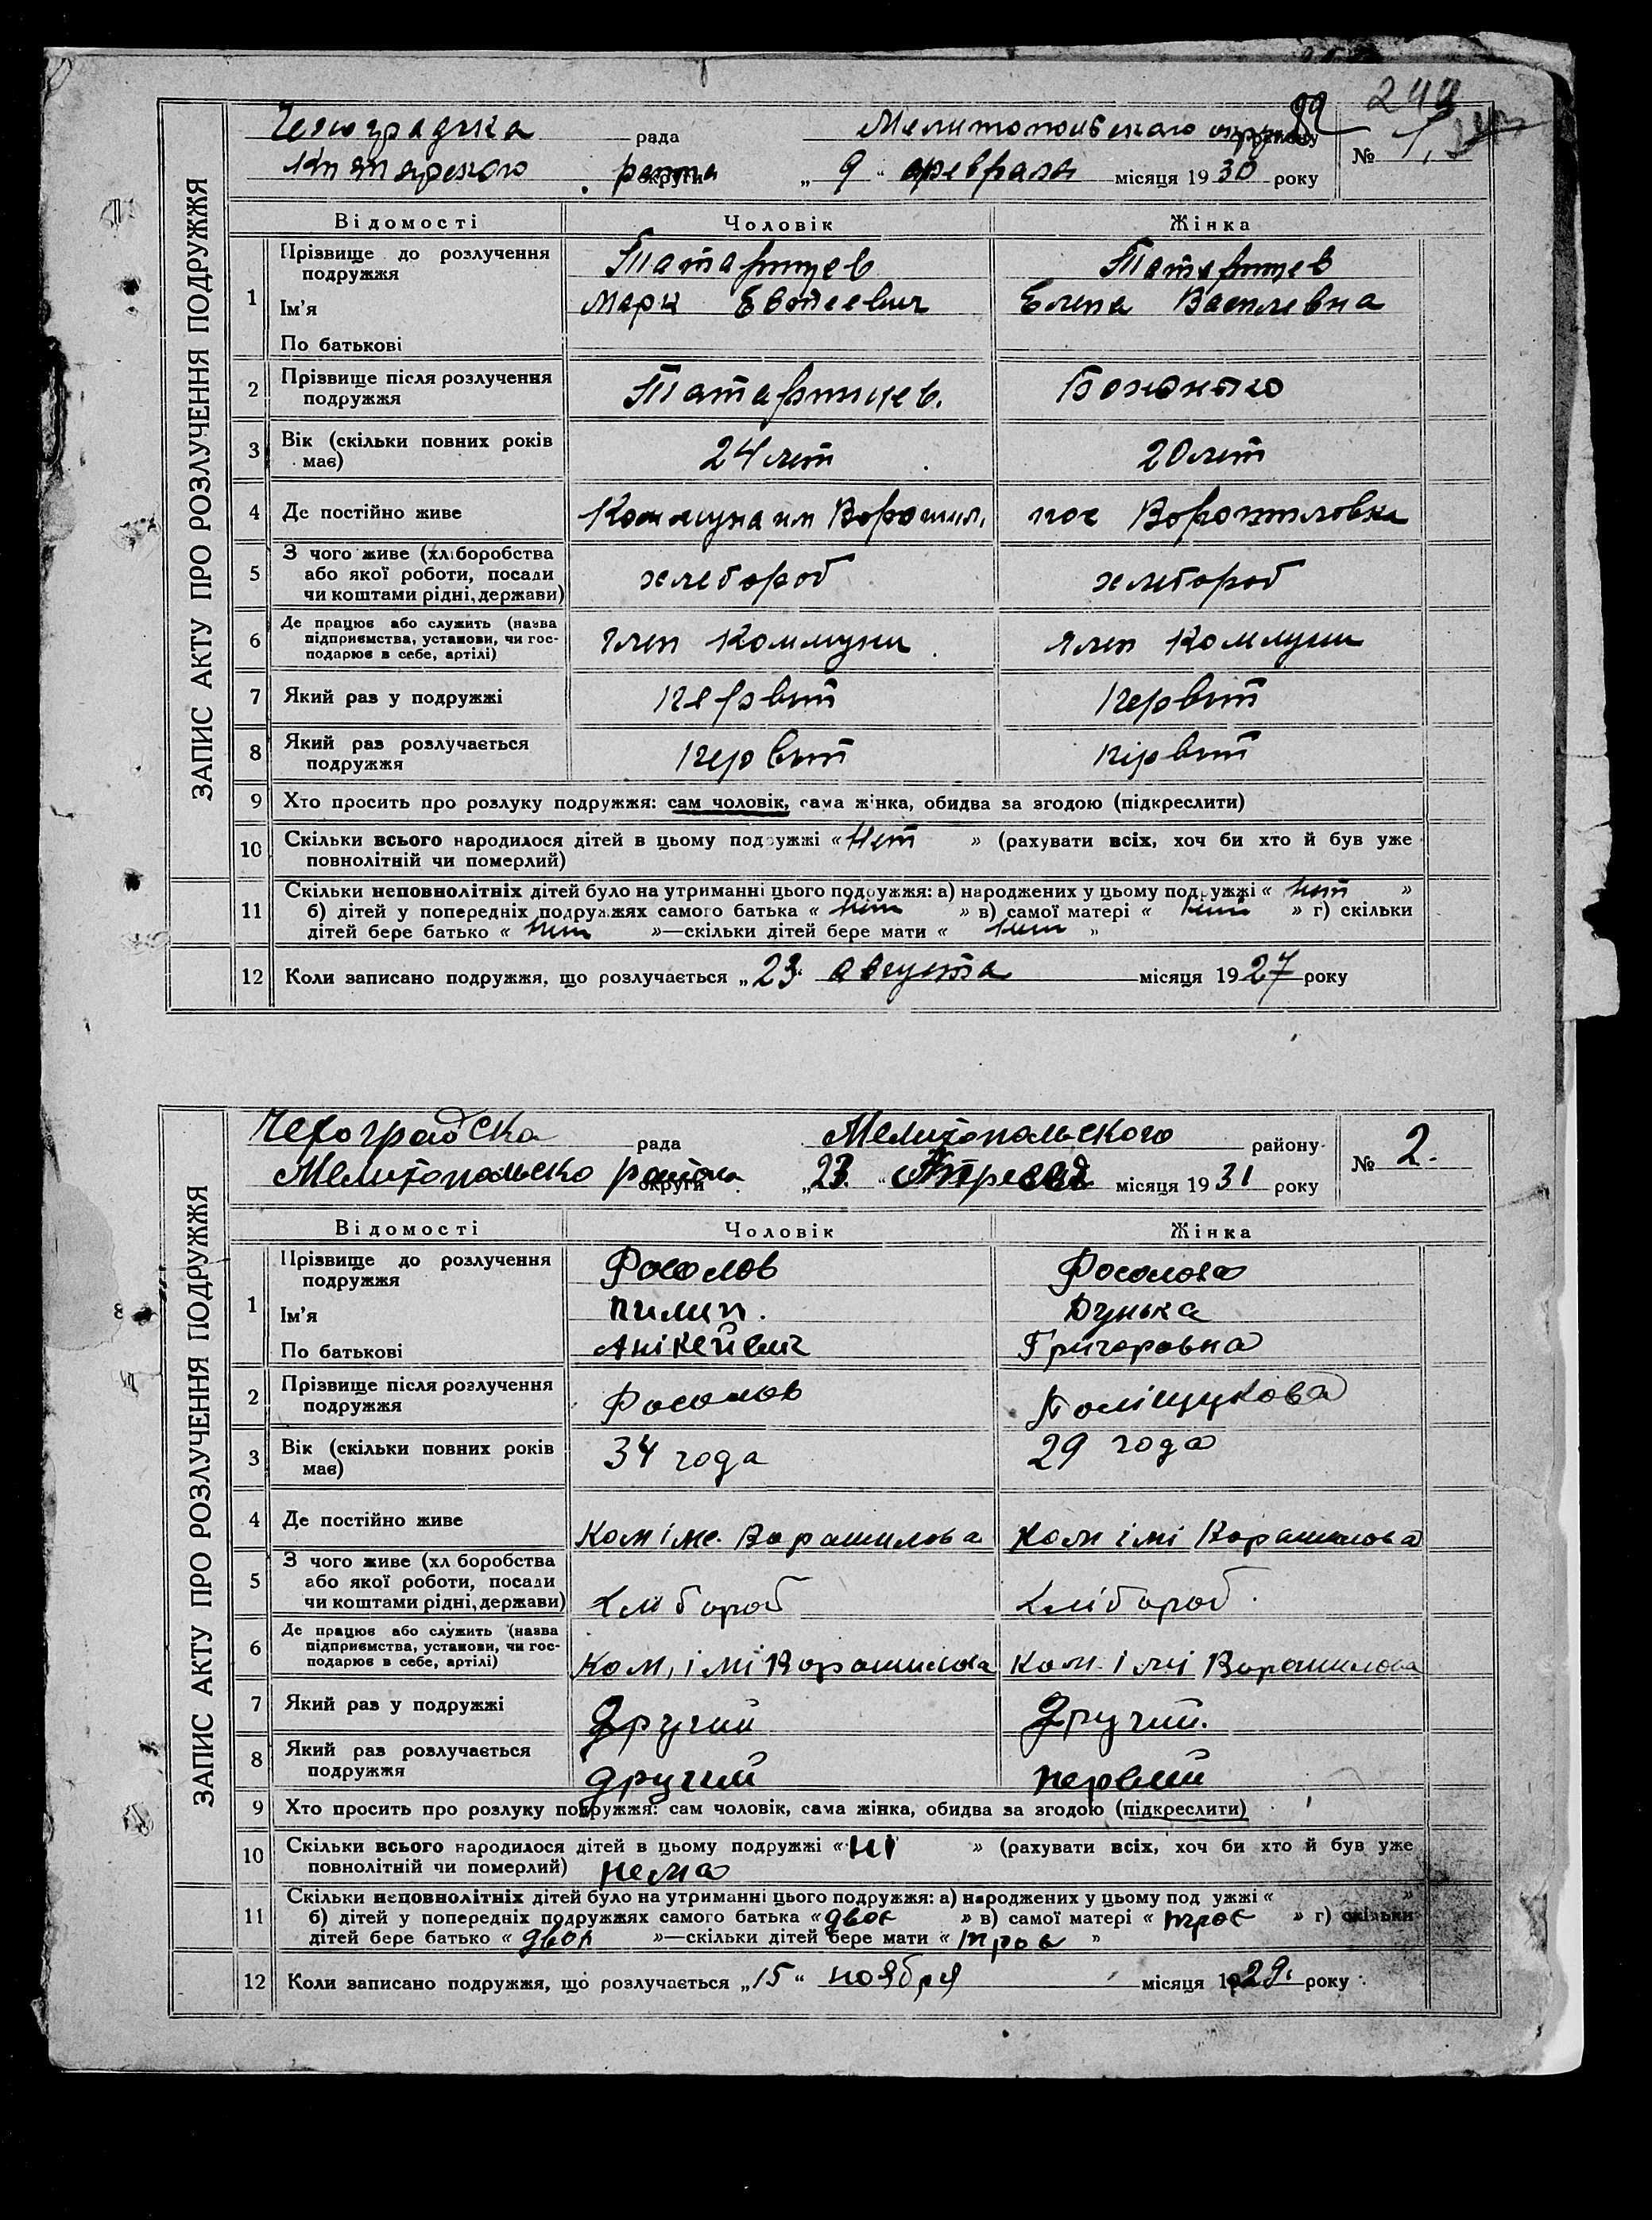 249
ЗАПИС АКТУ ПРО РОЗЛУЧЕННЯ ПОДРУЖЖЯ
рада Мелитопольского району № 1
района округи „ 9 “ февраля місяця 19 30 року
Відомості Чоловік Жінка
1 Прізвище до розлучення подружжя Татаринцев Татаринцев
Ім'я Марк Елена Василевна
По батькові
2 Прізвище після розлучення подружжя Татаринцев.
3 Вік (скільки повних років має) 24 лет 20 лет
4 Де постійно живе Коммуна им Ворошил. пос Ворошиловка
5 З чого живе (хліборобства або якої роботи, посади чи коштами рідні, держави) хлебороб хлебороб
6 Де працює або служить (назва підприємства, установи, чи господарює в себе, артілі) член Коммуни член Коммуни
7 Який раз у подружжі первый первый
8 Який раз розлучається подружжя первый первый
9 Хто просить про розлуку подружжя: сам чоловік, сама жінка, обидва за згодою (підкреслити)
10 Скільки всього народилося дітей в цьому подружжі « Нет » (рахувати всіх, хоч би хто й був уже
повнолітній чи померлий)
11 Скільки неповнолітніх дітей було на утриманні цього подружжя: а) народжених у цьому подружжі « нет »
б) дітей у попередніх подружжях самого батька « нет » в) самої матері « нет » г) скільки
дітей бере батько « нет »—скільки дітей бере мати « нет »
12 Коли записано подружжя, що розлучається „ 23 “ августа місяця 19 27 року
ЗАПИС АКТУ ПРО РОЗЛУЧЕННЯ ПОДРУЖЖЯ
рада Мелитопольского району № 2.
Мелитопольско района округи „ 23. “ місяця 19 31 року
Відомості Чоловік Жінка
1 Прізвище до розлучення подружжя Фосолов Фосолова
Ім'я Пилип. Дунька
По батькові Анікейевич Григоровна
2 Прізвище після розлучення подружжя Фосолов Поліщукова
3 Вік (скільки повних років має) 34 года 29 года
4 Де постійно живе Ком іме. Ворашилова Ком імі Ворашилова
5 З чого живе (хліборобства або якої роботи, посади чи коштами рідні, держави) Хлібороб Хлібороб.
6 Де працює або служить (назва підприємства, установи, чи господарює в себе, артілі) Ком, імі Ворашилова Ком. імі Ворашилова
7 Який раз у подружжі Другий Другий.
8 Який раз розлучається подружжя другий первий
9 Хто просить про розлуку подружжя: сам чоловік, сама жінка, обидва за згодою (підкреслити)
10 Скільки всього народилося дітей в цьому подружжі « ні » (рахувати всіх, хоч би хто й був уже
повнолітній чи померлий) нема
11 Скільки неповнолітніх дітей було на утриманні цього подружжя: а) народжених у цьому подружжі « »
б) дітей у попередніх подружжях самого батька « двоє » в) самої матері « троє » г) скільки
дітей бере батько « двоє »—скільки дітей бере мати « троє »
12 Коли записано подружжя, що розлучається „ 15 “ ноября місяця 19 29. року